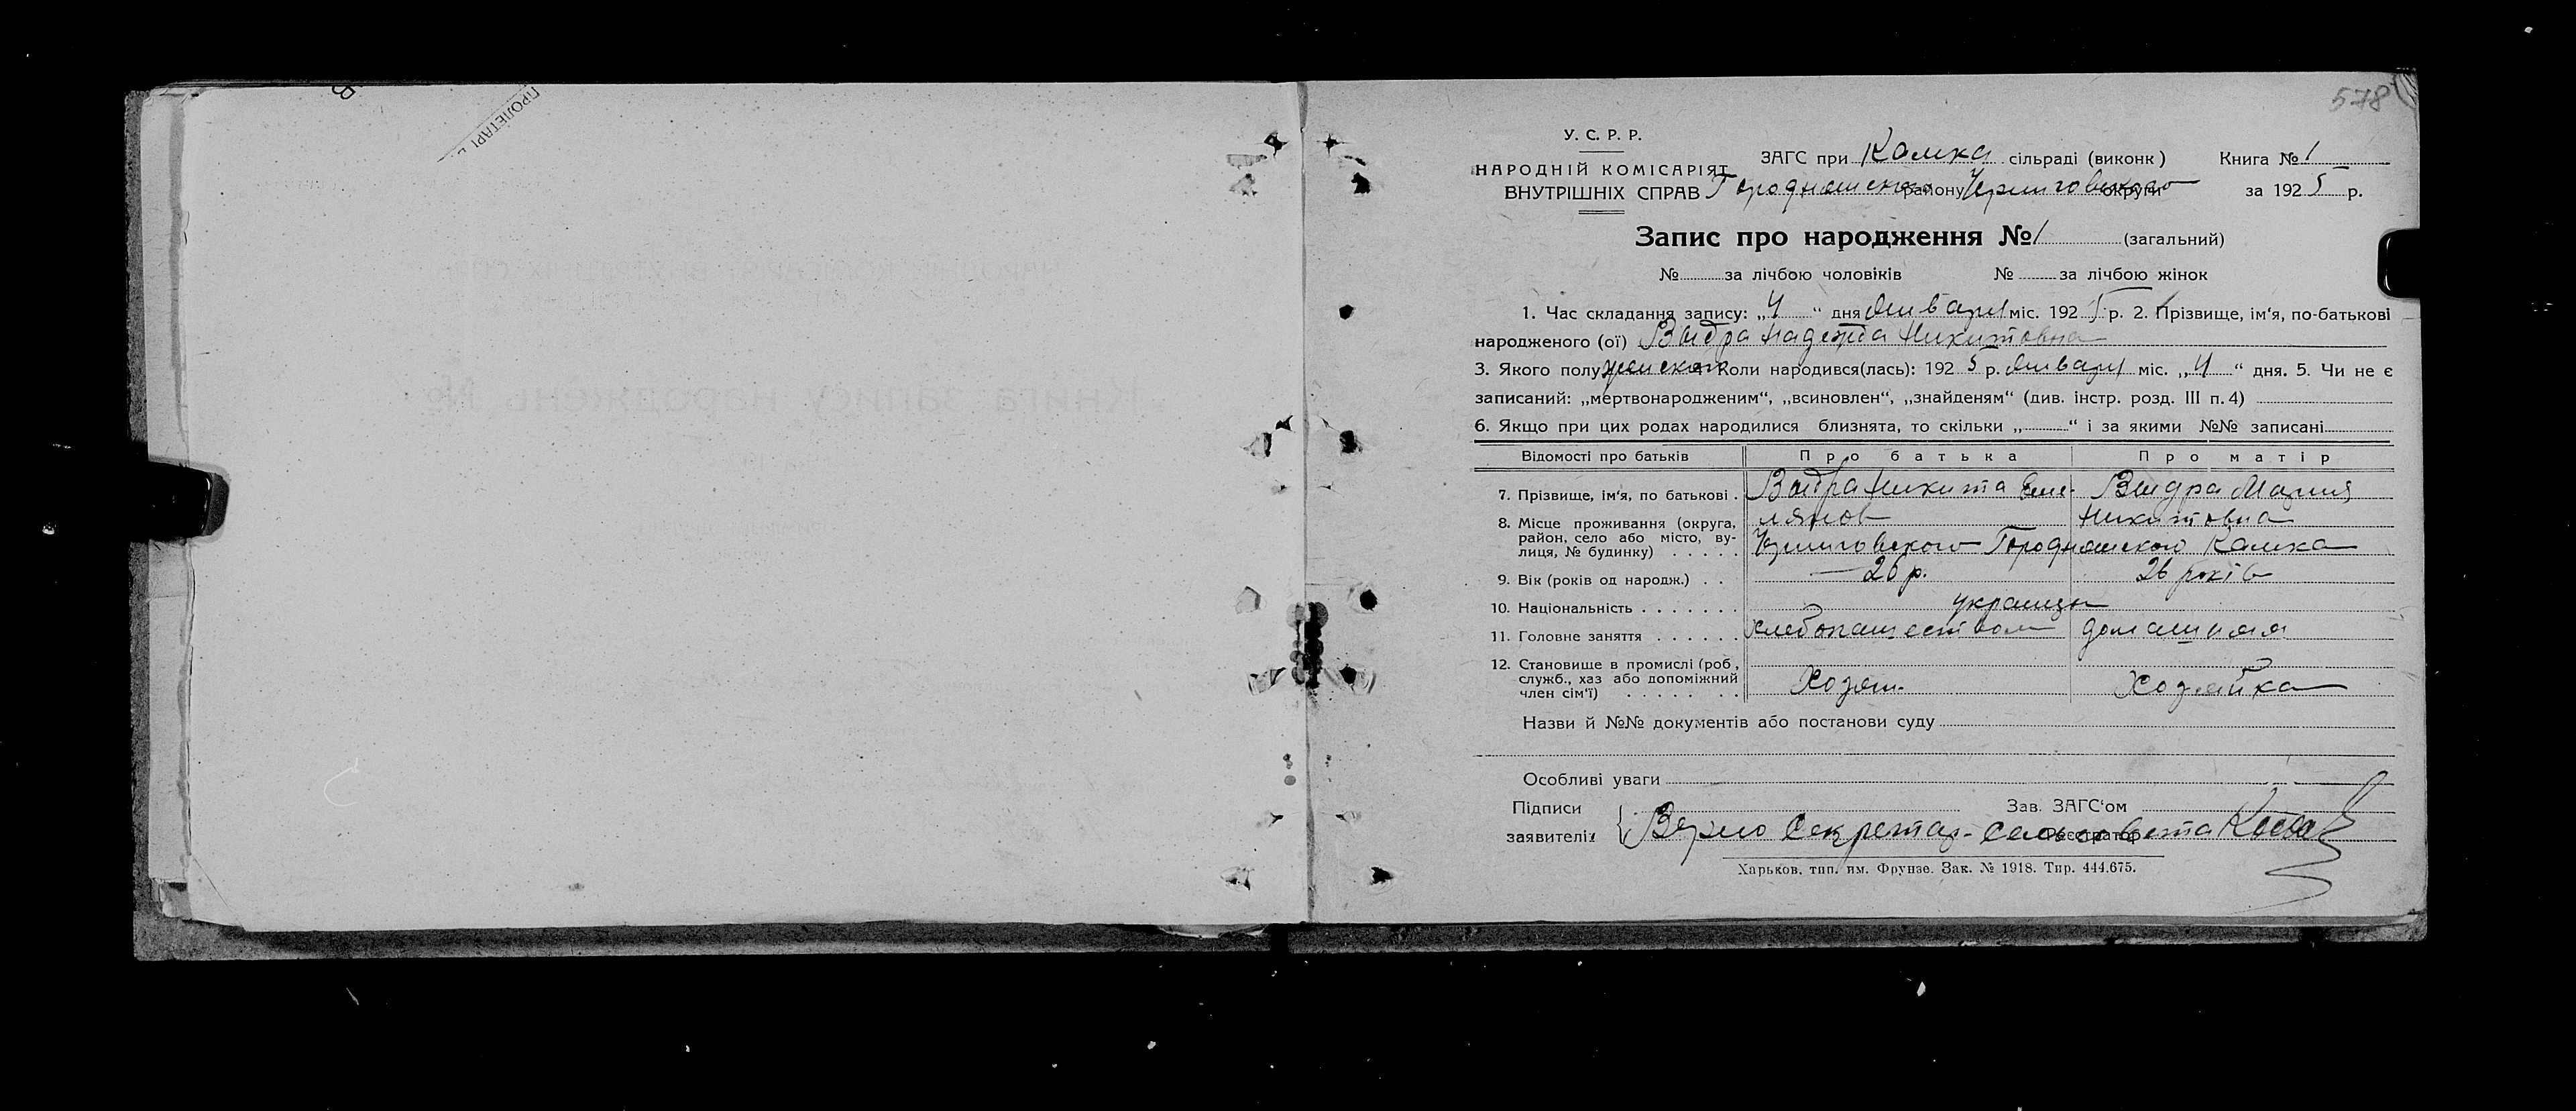 ПРОЛЕТАРІ В
578
У. С. Р. Р.
НАРОДНІЙ КОМІСАРІЯТ
ВНУТРІШНІХ СПРАВ
ЗАГС при Камка сільраді (виконк) Книга № 1
Городнянского району Черниговского округи за 1925 р.
Запис про народження № 1 (загальний)
№ за лічбою чоловіків № за лічбою жінок
1. Час складання запису: „4“ дня Января міс. 1925 р. 2. Прізвище, ім'я, по-батькові
народженого (ої) Выдра Надежда Никитовна
3. Якого полу женского 4. Коли народився(лась): 1925 р. Января міс. „4“ дня. 5. Чи не є
записаний: „мертвонародженим“, „всиновлен“, „знайденям“ (див. інстр. розд. III п. 4)
6. Якщо при цих родах народилися близнята, то скільки „ “ і за якими №№ записані
Відомості про батьків Про батька Про матір
7. Прізвище, ім'я, по батькові . Выдра Никита Еме- Выдра Мария
лянов Никитовна
8. Місце проживання (округа,
район, село або місто, ву-
лиця, № будинку) . . . . . Черниговского Городнянского Камка
9. Вік (років од народж.) . . 26 р. 26 років
10. Національність . . . . . . . украинцы
11. Головне заняття . . . . . . хлебопашеством домашняя
12. Становище в промислі (роб,
служб., хаз або допоміжний
член сім'ї) . . . . . . . . Хозяин. Хозяйка
Назви й №№ документів або постанови суду
Особливі уваги
Підписи Зав. ЗАГС'ом
заявителів Верно Секретар- сельсовета
Реєстратор
Харьков, тип. им. Фрунзе. Зак. № 1918. Тир. 444.675.